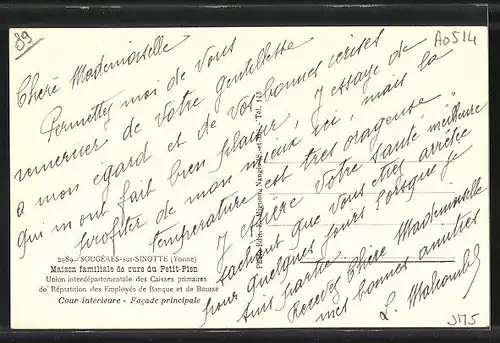 89
A0514
Chère Mademoiselle
Permettez moi de vous
remercier de votre gentillesse
a mon égard et de vos bonnes cerises
qui m ont fait bien plaisir, J essaye de
profiter de mon mieux ici, mais la
température est tres orageuse.
J espère votre santé meilleure
sachant que vous etiez arrêtée
pour quelques jours lorsque je
suis partie
Recevez Chère Mademoiselle
mes bonnes amitiés
L.
2589. SOUGÈRES-sur-SINOTTE (Yonne)
Maison familiale de cure du Petit-Pien
Union interdépartementale des Caisses primaires
de Répartition des Employés de Banque et de Bourse
Cour intérieure - Façade principale
JM5